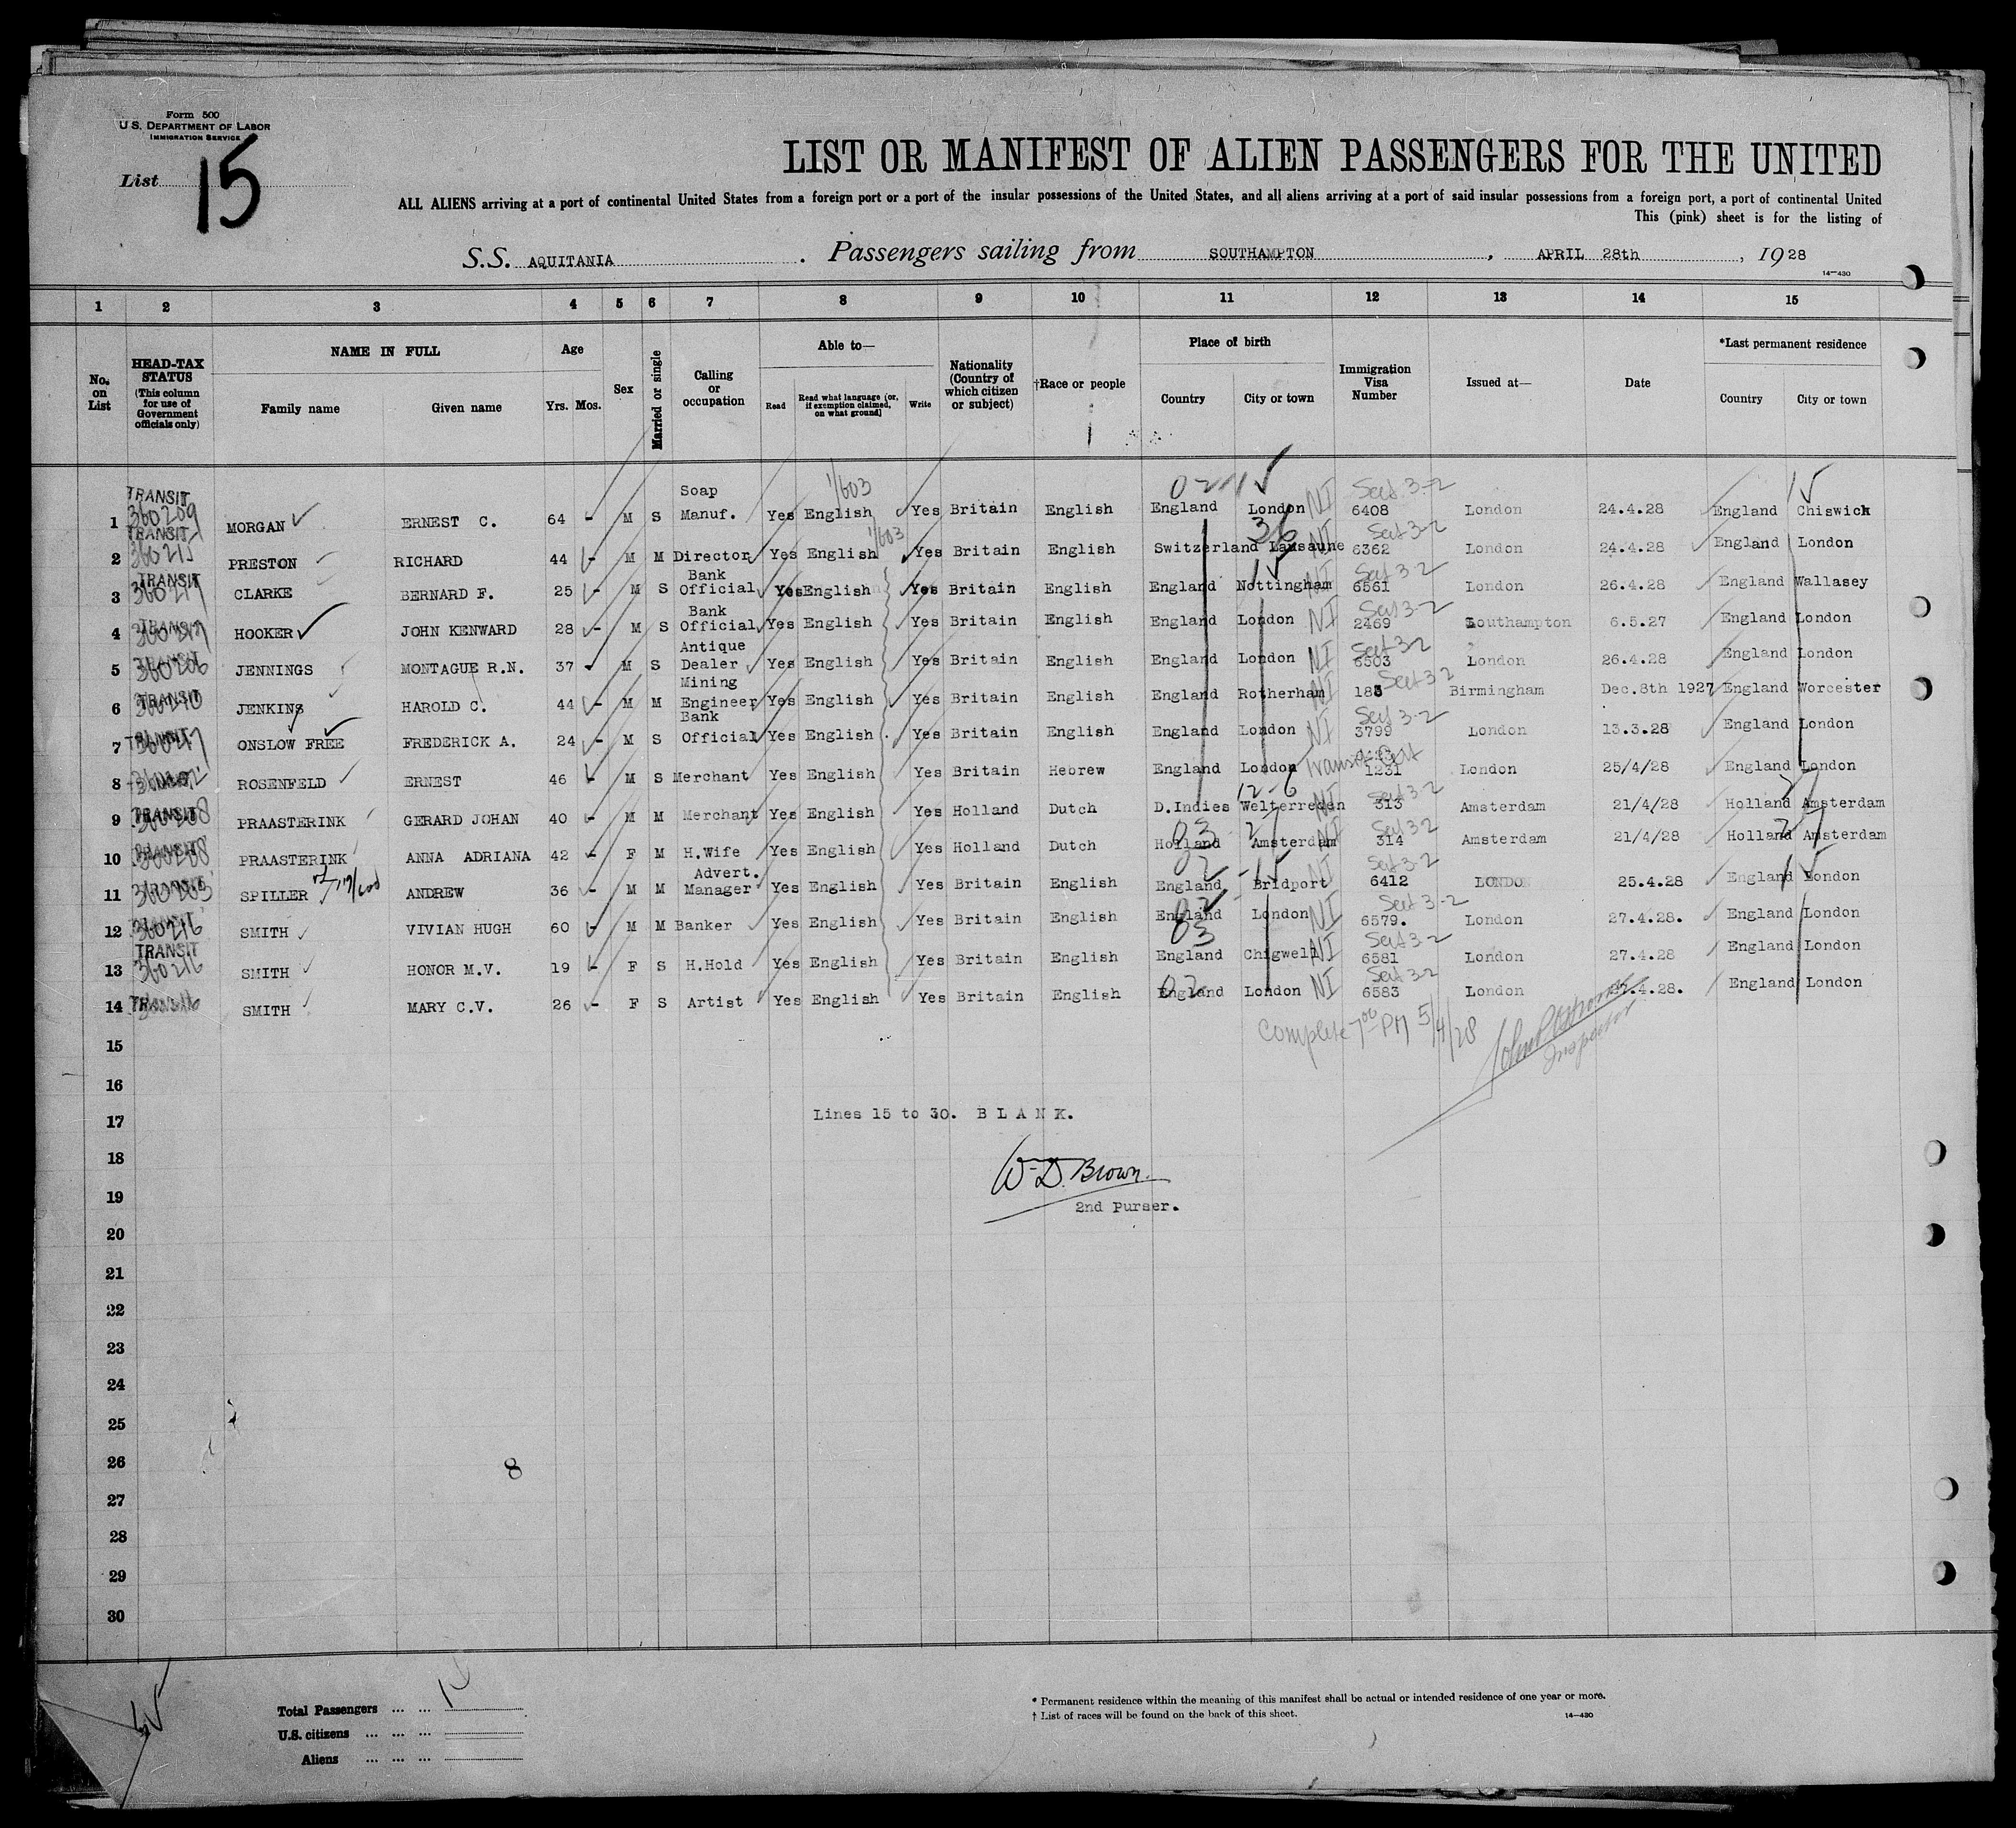 Form 500
U.S. DEPARTMENT OF LABOR
IMMIGRATION SERVICE
List 15
LIST OR MANIFEST OF ALIEN PASSENGERS FOR THE UNITED
ALL ALIENS arriving at a port of continental United States from a foreign port or a port of the insular possessions of the United States, and all aliens arriving at a port of said insular possessions from a foreign port, a port of continental United
This (pink) sheet is for the listing of
S.S. AQUITANIA. Passengers sailing from SOUTHAMPTON, APRIL 28th, 1928
14—430
1 2 3 4 5 6 7 8 9 10 11 12 13 14 15
No. on List
HEAD-TAX STATUS (This column for use of Government officials only)
NAME IN FULL
Family name Given name
Age
Yrs. Mos.
Sex
Married or single
Calling or occupation
Able to—
Read Read what language (or, if exemption claimed, on what ground) Write
Nationality (Country of which citizen or subject)
†Race or people
Place of birth
Country City or town
Immigration Visa Number
Issued at—
Date
*Last permanent residence
Country City or town
1 TRANSIT 360209 MORGAN ERNEST C. 64 - M S Soap Manuf. Yes English 1/603 Yes Britain English England London NI Sect 3-2 6408 London 24.4.28 England Chiswick
2 TRANSIT 360215 PRESTON RICHARD 44 - M M Director Yes English 1/603 Yes Britain English Switzerland Lausaune NI Sect 3-2 6362 London 24.4.28 England London
3 TRANSIT 360217 CLARKE BERNARD F. 25 - M S Bank Official Yes English Yes Britain English England Nottingham NI Sect 3-2 6561 London 26.4.28 England Wallasey
4 TRANSIT HOOKER JOHN KENWARD 28 - M S Bank Official Yes English Yes Britain English England London NI Sect 3-2 2469 Southampton 6.5.27 England London
5 TRANSIT 360206 JENNINGS MONTAGUE R.N. 37 - M S Antique Dealer Yes English Yes Britain English England London NI Sect 3-2 6503 London 26.4.28 England London
6 TRANSIT JENKINS HAROLD C. 44 - M M Mining Engineer Yes English Yes Britain English England Rotherham NI Sect 3-2 Birmingham Dec.8th 1927 England Worcester
7 TRANSIT ONSLOW FREE FREDERICK A. 24 - M S Bank Official Yes English Yes Britain English England London NI Sect 3-2 3799 London 13.3.28 England London
8 ROSENFELD ERNEST 46 - M S Merchant Yes English Yes Britain Hebrew England London 1231 London 25/4/28 England London
9 TRANSIT PRAASTERINK GERARD JOHAN 40 - M M Merchant Yes English Yes Holland Dutch D.Indies Welterreden NI Sect 3-2 313 Amsterdam 21/4/28 Holland Amsterdam
10 TRANSIT PRAASTERINK ANNA ADRIANA 42 - F M H.Wife Yes English Yes Holland Dutch Holland Amsterdam NI Sect 3-2 314 Amsterdam 21/4/28 Holland Amsterdam
11 SPILLER ANDREW 36 - M M Advert. Manager Yes English Yes Britain English England Bridport NI Sect 3-2 6412 LONDON 25.4.28 England London
12 360216 SMITH VIVIAN HUGH 60 - M M Banker Yes English Yes Britain English England London NI Sect 3-2 6579. London 27.4.28. England London
13 TRANSIT 360216 SMITH HONOR M.V. 19 - F S H.Hold Yes English Yes Britain English England Chigwell NI Sect 3-2 6581 London 27.4.28 England London
14 SMITH MARY C.V. 26 - F S Artist Yes English Yes Britain English England London NI Sect 3-2 6583 London 27.4.28. England London
15
Complete 7⁰⁰ PM 5/4/28
Inspector
16
17 Lines 15 to 30. BLANK.
18
W.D. Brown.
19
2nd Purser.
20
21
22
23
24
25
26
8
27
28
29
30
Total Passengers ... ...
U.S. citizens ... ... ...
Aliens ... ... ...
* Permanent residence within the meaning of this manifest shall be actual or intended residence of one year or more.
† List of races will be found on the back of this sheet.
14—430